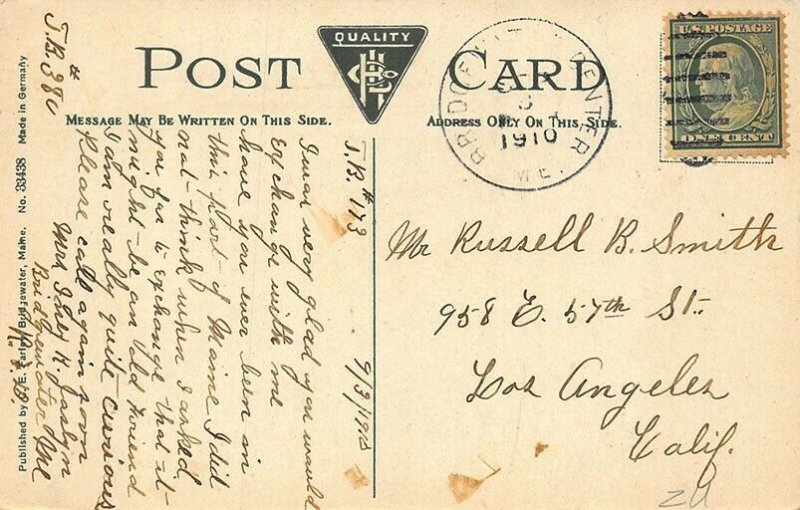 POST CARD
QUALITY
MESSAGE MAY BE WRITTEN ON THIS SIDE.
ADDRESS ONLY ON THIS SIDE.
U.S. POSTAGE
ONE CENT
1910
ME
J.B. #173
9/3/1910
I was very glad you would
exchange with me
have you ever been in
this part of Maine I did
not think when I asked
you for to exchange that it
might be an old friend
I am really quite curious
Please call again soon
Mrs K. Joslyn
Bridgewater
Me
J.B. #380
Mr Russell B. Smith
958 E. 57th St.
Los Angeles
Calif.
Published by E. Bridgewater, Maine. No. 33438 Made in Germany